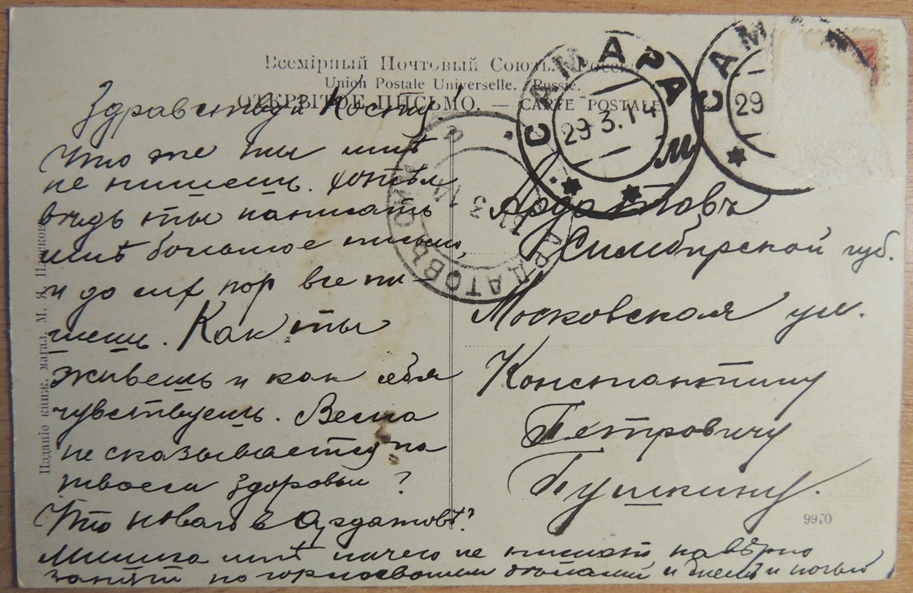 Всемірный Почтовый Союзъ. Россія.
Union Postale Universelle. Russie.
ОТКРЫТОЕ ПИСЬМО. — CARTE POSTALE
САМАРА
29.3.14
М
САМ
29
АРДАТОВЪ СИМ
Здравствуй Костя.
Что же ты мнѣ
не пишешь. Хотѣл
вѣдь ты написать
мнѣ большое письмо,
и до сих пор все пи-
шешь. Как ты
живешь и как себя
чувствуешь. Весна
не сказывается на
твоем здоровьи?
Что новаго в Ардатовѣ?
Мишка мнѣ ничего не пишет навѣрно
занят и днем и ночью
Ардатовъ
Симбирской губ.
Московская ул.
Константину
Петровичу
Пушкину.
9970
Изданіе книж. магаз. М. Я.